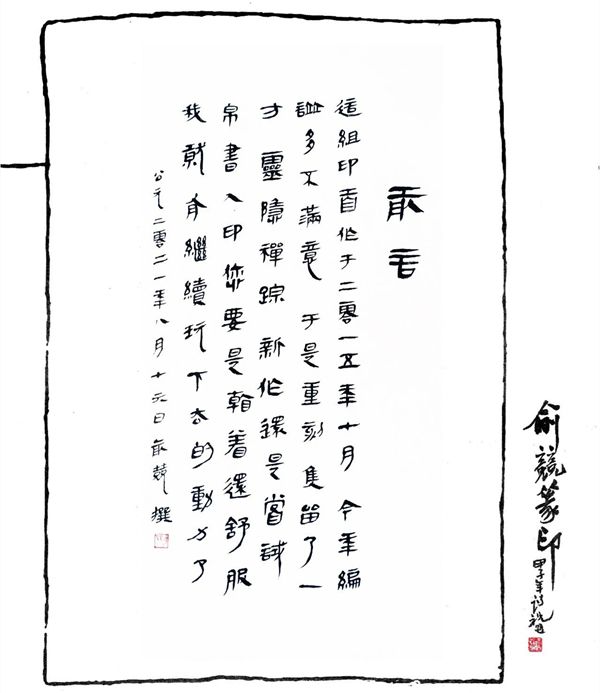 前言
這組印首作于二零一五年十月 今年編
多不滿意 于是重刻 隻留了一
方靈隱禪踪 新作還是嘗試
帛書入印 您要是瞧着還舒服
我就有繼續玩下去的動力了
公元二零二一年八月十六日 俞競撰
俞競篆印
甲子年